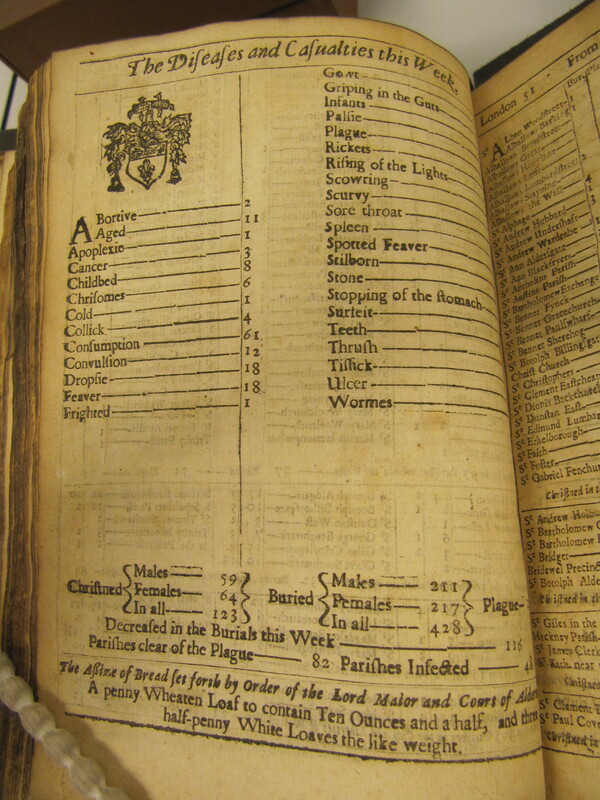 The Diſeaſes and Caſualties this Week.
ABortive 2
Aged 11
Apoplexie 1
Cancer 3
Childbed 8
Chriſomes 6
Cold 1
Collick 4
Conſumption 61
Convulſion 12
Dropſie 18
Feaver 18
Frighted 1
Gowt
Griping in the Guts
Infants
Palſie
Plague
Rickets
Riſing of the Lights
Scowring
Scurvy
Sore throat
Spleen
Spotted Feaver
Stilborn
Stone
Stopping of the ſtomach
Surfeit
Teeth
Thruſh
Tiſſick
Ulcer
Wormes
Chriſtned Males 59
Females 64
In all 123
Buried Males 211
Females 217
In all 428
Plague
Decreaſed in the Burials this Week 116
Pariſhes clear of the Plague 82 Pariſhes Infected
The Aſſize of Bread ſet forth by Order of the Lord Maior and Court of
A penny Wheaten Loaf to contain Ten Ounces and a half, and three
half-penny White Loaves the like weight.
London 51 From
St Alphage
St Andrew Hubbard
St Andrew Underſhaft
St Andrew Wardrobe
St Ann Alderſgate
St Ann Blackfryers
St Bartholomew Exchange
St Bennet Fynck
St Bennet Gracechurch
St Bennet Paulſwharf
St Bennet Sherehog
St Botolph Billingſgate
Chriſt Church
St Chriſtophers
St Clement Eaſtcheap
St Dionis Backchurch
St Dunſtan Eaſt
St Edmund Lumbar
St Ethelborough
St Faith
St Foſter
St Gabriel Fenchurch
Chriſtned in
St Andrew Holbo
St Bartholomew
St Bartholomew
St Bridget
Bridewel Precinct
St Botolph Alde
St Giles in the
Hackney Pariſh
St James Clerk
St Kath. near
St Clement
St Paul Cove
Chriſtned in